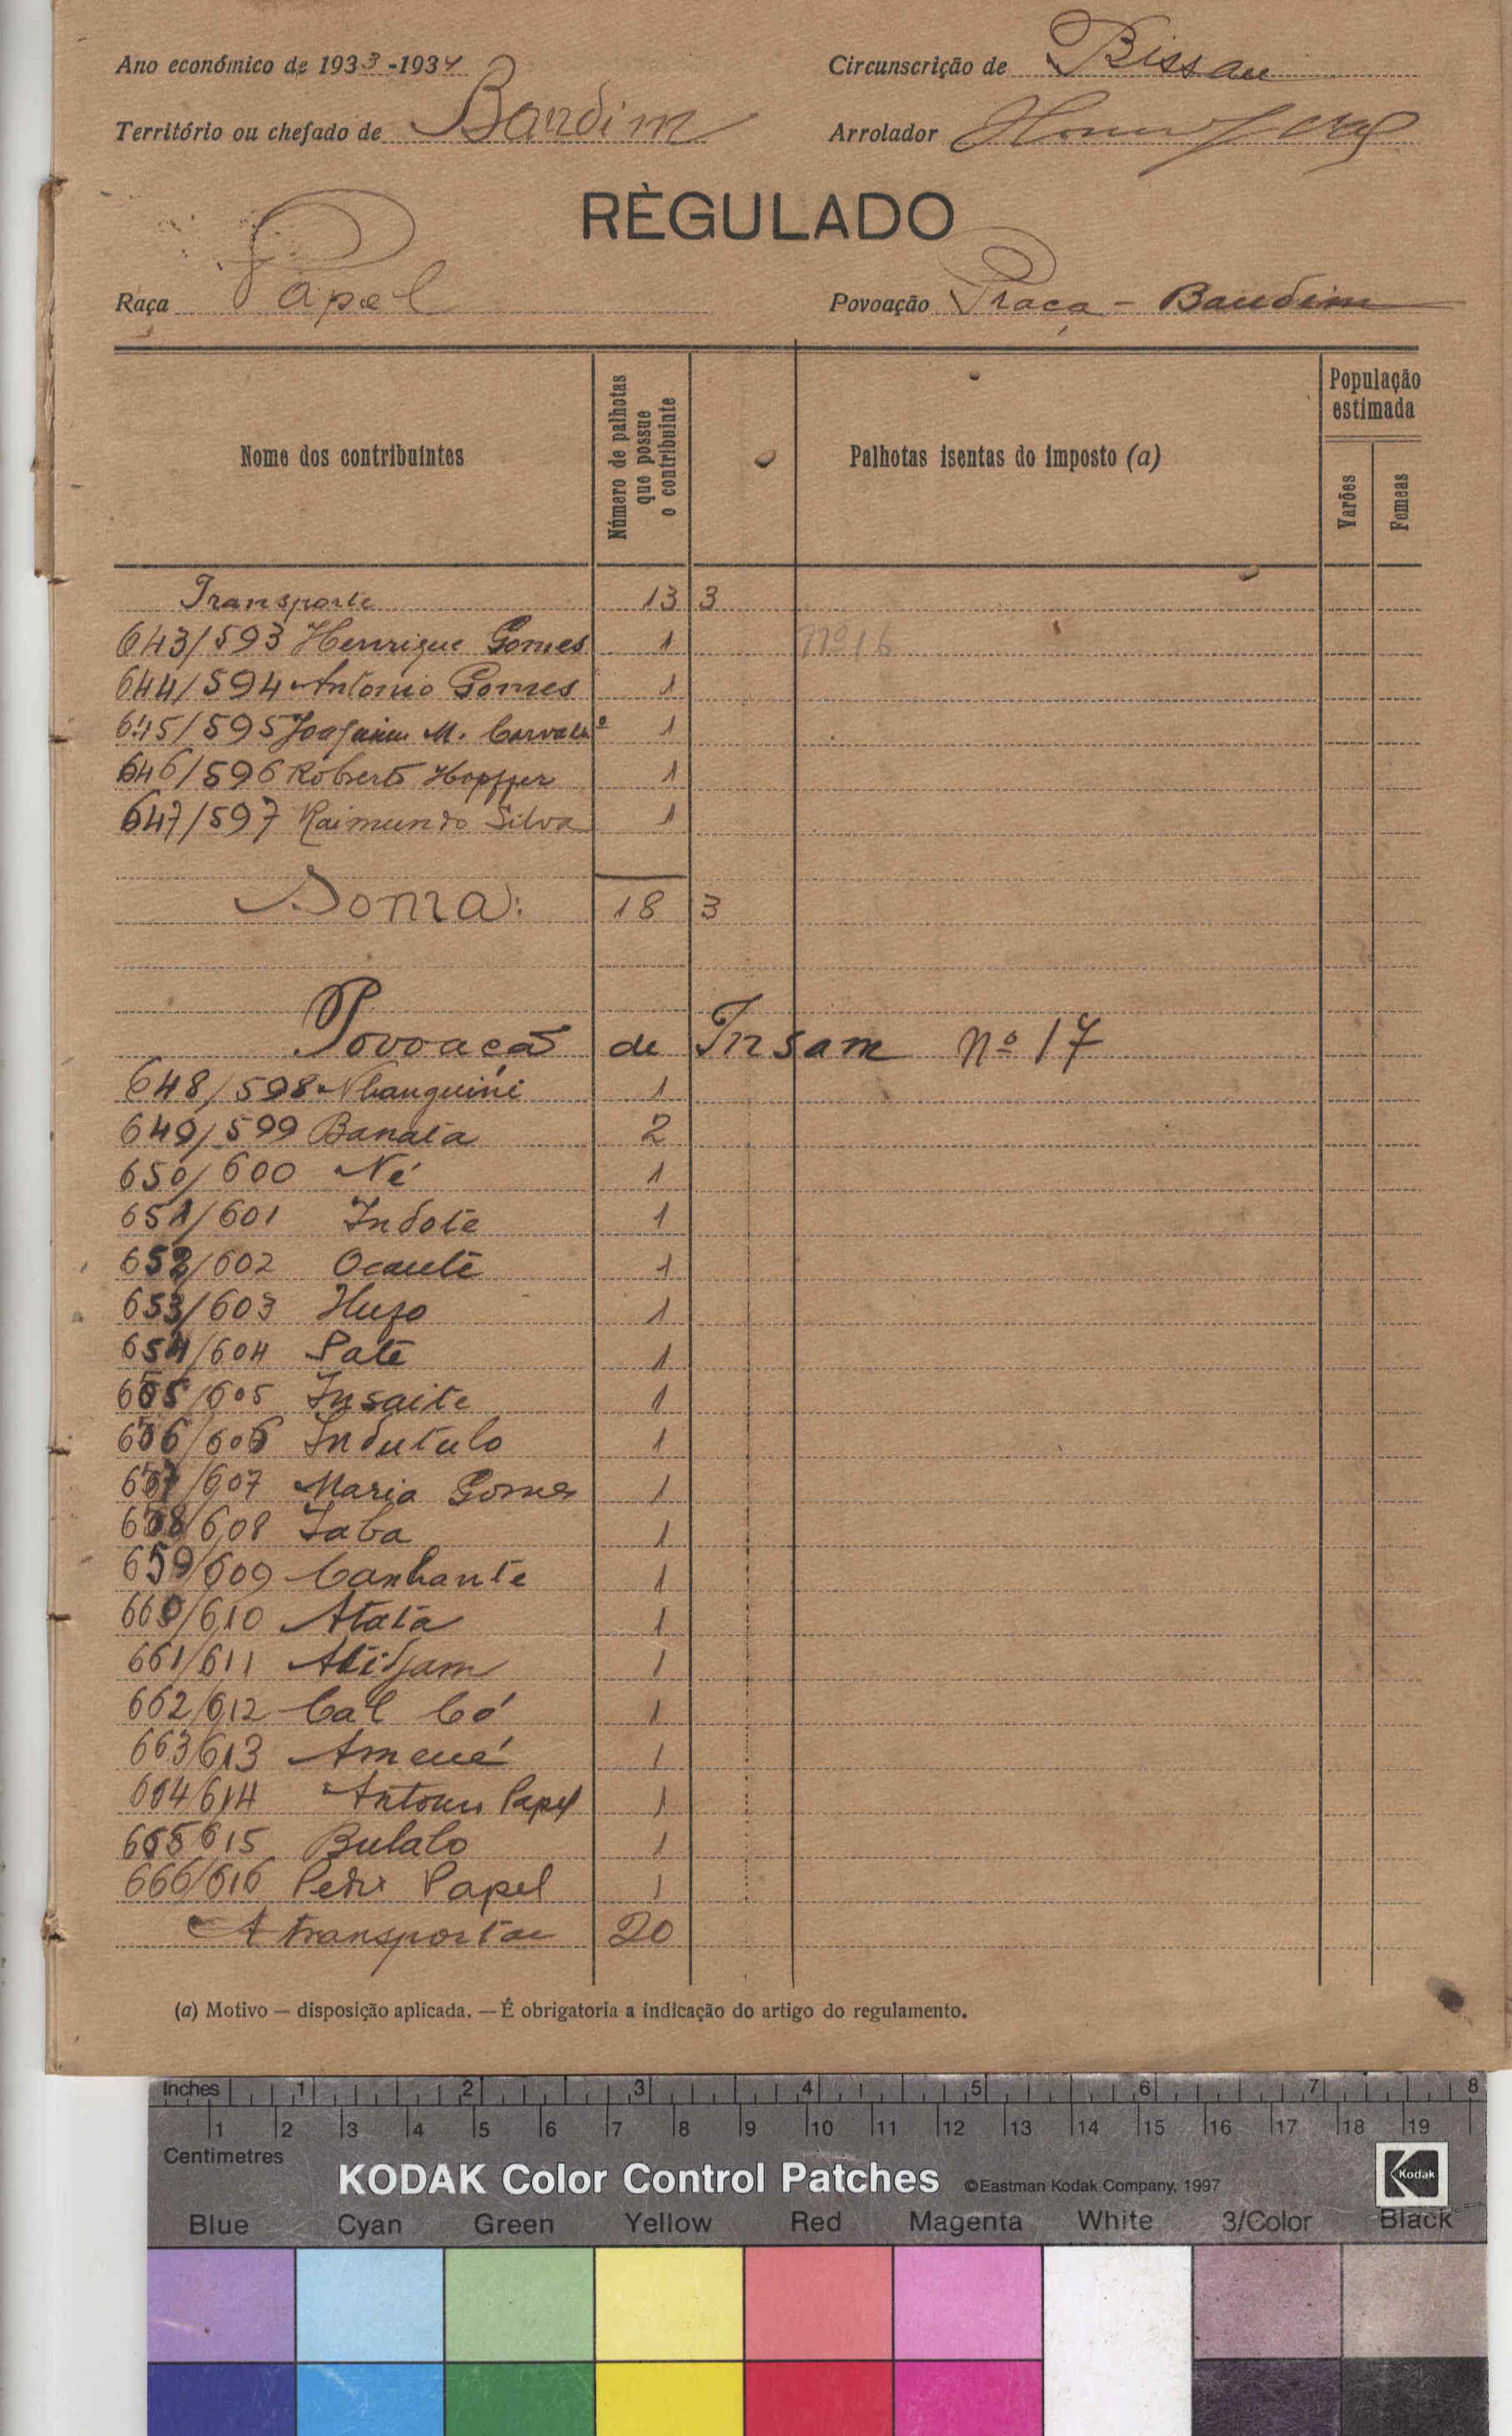 Ano económico de 1933-1934 Circunscrição de Bissau
Território ou chefado de Bandim Arrolador
RÈGULADO
Raça Papel Povoação Praça - Bandim
Nome dos contribuintes Número de palhotas que possue o contribuinte Palhotas isentas do imposto (a) População estimada Varões Femeas
Transporte 13 3
643/593 Henrique Gomes 1 nº 16
644/594 Antonio Gomes 1
645/595 Joaquim M. Carvalho 1
646/596 Roberto Hopffer 1
647/597 Raimundo Silva 1
Soma: 18 3
Povoação de Insam nº 17
648/598 Nhanguini 1
649/599 Banata 2
650/600 Né 1
651/601 Indote 1
652/602 Ocante 1
653/603 Hugo 1
654/604 Pate 1
655/605 Insaite 1
656/606 Indutulo 1
657/607 Maria Gomes 1
658/608 Jaba 1
659/609 Canhante 1
660/610 Atata 1
661/611 1
662/612 Cal Có 1
663/613 1
664 614 Antonio Papel 1
665 615 Bulalo 1
666/616 Pedro Papel 1
A transportar 20
(a) Motivo — disposição aplicada. — É obrigatoria a indicação do artigo do regulamento.
Inches 1 2 3 4 5 6 7 8
1 2 3 4 5 6 7 8 9 10 11 12 13 14 15 16 17 18 19
Centimetres
KODAK Color Control Patches ©Eastman Kodak Company, 1997 Kodak
Blue Cyan Green Yellow Red Magenta White 3/Color Black